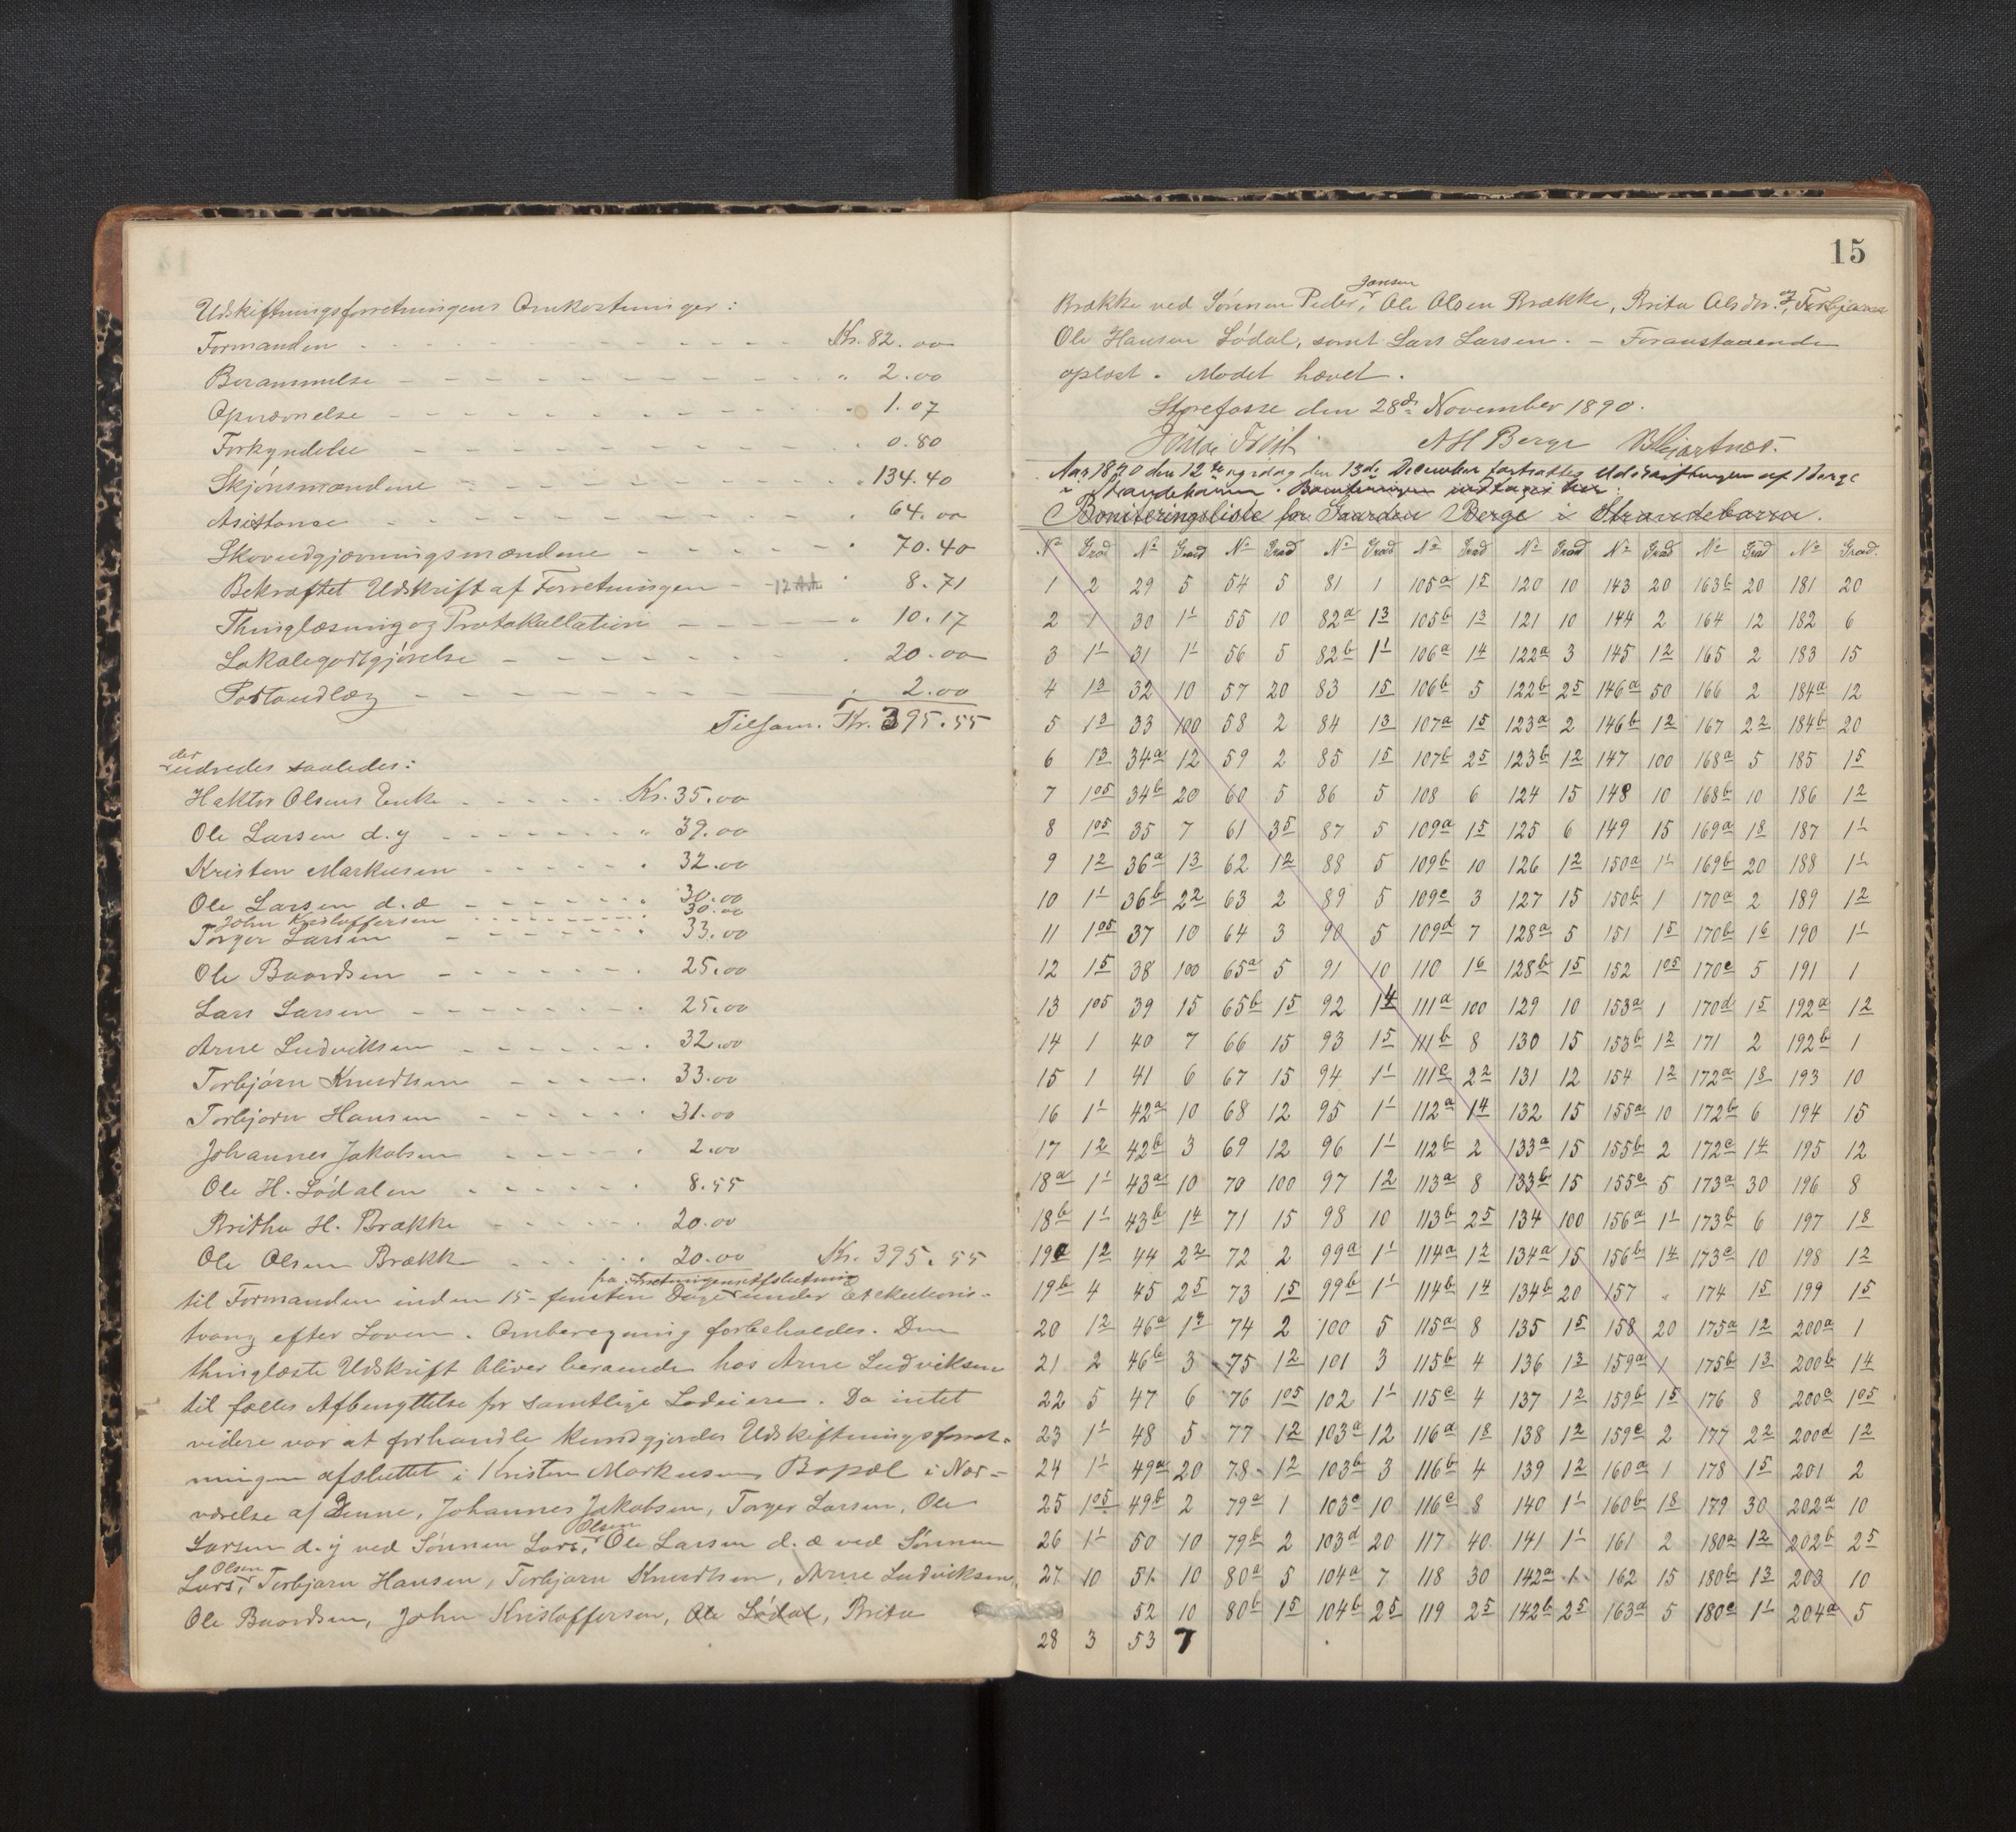 Udskiftningsforretningens Omkostninger:
Formanden - - - - Kr. 82.00
Berammelse - - - - " 2.00
Opnævnelse - - - - " 1.07
Forkyndelse - - - - " 0.80
Skjönsmændene - - - - " 134.40
Asistance - - - - " 64.00
Skovudgjævningsmændene - - - - " 70.40
Bekræftet Udskrift af Forretningen - - " 8.71
Thinglæsning og Protokollation - - - - " 10.17
Lokalegodtgjörelse - - - - " 20.00
Postoudlæg - - - - " 2.00
Tilsam. Kr. 395.55
der
udredes saaledes:
Haktor Olsens Enke - - - - Kr. 35.00
Ole Larsen d.y - - - - " 39.00
Kristen Markusen - - - - " 32.00
Ole Larsen d.æ - - - - " 30.00
John Kristoffersen - - - - " 30.00
Torger Larsen - - - - " 33.00
Ole Baardsen - - - - " 25.00
Lars Larsen - - - - " 25.00
Arne Ludviksen - - - - " 32.00
Torbjörn Knudtsen - - - - " 33.00
Torbjorn Hansen - - - - " 31.00
Johannes Jakobsen - - - - " 2.00
Ole H. Lödalen - - - - " 8.55
Britha H. Brække - - - - " 20.00
Ole Olsen Brække - - - - " 20.00 Kr. 395.55
fra Forretningens Afslutning
til Formanden inden 15 - femten Dage under Exekutions-
tvang efter Loven. Omberegning forbeholdes. Den
thinglæste Udskrift bliver beroende hos Arne Ludviksen
til fælles Afbenyttelse for samtlige Lodeiere. Da intet
videre var at forhandle kundgjordes Udskiftningsforret-
ningen afsluttet i Kristen Markusens Bopæl i Nær-
værelse af Denne, Johannes Jakobsen, Torger Larsen, Ole
Olsen
Larsen d.y ved Sönnen Lars, Ole Larsen d.æ ved Sönnen
Olsen
Lars, Torbjörn Hansen, Torbjörn Knudtsen, Arne Ludviksen,
Ole Baardsen, John Kristoffersen, Ole Lødal, Brita
15
Jansen
Brække ved Sönnen Peder, Ole Olsen Brække, Brita Olsdtr. og Torbjörnsen
Ole Hansen Lödal, samt Lars Larsen. - Foranstaaende
oplæst. Mødet hævet.
Storefosse den 28de November 1890.
A H Berge
Aar 1890 den 12te og idag den 13de December fortsattes Udskiftningen af Berge
i Strandebarm. Boniteringen indtages her
Boniteringsliste for Gaarden Berge i Strandebarm.
No Grad No Grad No Grad No Grad No Grad No Grad No Grad No Grad No Grad.
1 2 29 5 54 5 81 1 105a 15 120 10 143 20 163b 20 181 20
2 1 30 11 55 10 82a 13 105b 13 121 10 144 2 164 12 182 6
3 11 31 11 56 5 82b 11 106a 14 122a 3 145 12 165 2 183 15
4 13 32 10 57 20 83 15 106b 5 122b 25 146a 50 166 2 184a 12
5 13 33 100 58 2 84 13 107a 15 123a 2 146b 12 167 22 184b 20
6 13 34a 12 59 2 85 15 107b 25 123b 12 147 100 168a 5 185 15
7 105 34b 20 60 5 86 5 108 6 124 15 148 10 168b 10 186 12
8 105 35 7 61 35 87 5 109a 15 125 6 149 15 169a 18 187 11
9 12 36a 13 62 12 88 5 109b 10 126 12 150a 11 169b 20 188 11
10 11 36b 22 63 2 89 5 109c 3 127 15 150b 1 170a 2 189 12
11 105 37 10 64 3 90 5 109d 7 128a 5 151 15 170b 16 190 11
12 15 38 100 65a 5 91 10 110 16 128b 15 152 105 170c 5 191 1
13 105 39 15 65b 15 92 14 111a 100 129 10 153a 1 170d 15 192a 12
14 1 40 7 66 15 93 15 111b 8 130 15 153b 12 171 2 192b 1
15 1 41 6 67 15 94 11 111c 22 131 12 154 12 172a 18 193 10
16 11 42a 10 68 12 95 11 112a 14 132 15 155a 10 172b 6 194 15
17 12 42b 3 69 12 96 11 112b 2 133a 15 155b 2 172c 14 195 12
18a 11 43a 10 70 100 97 12 113a 8 133b 15 155c 5 173a 30 196 8
18b 11 43b 14 71 15 98 10 113b 25 134 100 156a 11 173b 6 197 18
19a 12 44 22 72 2 99a 11 114a 12 134a 15 156b 14 173c 10 198 12
19b 4 45 25 73 15 99b 11 114b 14 134b 20 157 " 174 15 199 15
20 12 46a 14 74 2 100 5 115a 8 135 15 158 20 175a 12 200a 1
21 2 46b 3 75 12 101 3 115b 4 136 13 159a 1 175b 13 200b 14
22 5 47 6 76 105 102 11 115c 4 137 12 159b 15 176 8 200c 105
23 11 48 5 77 12 103a 12 116a 18 138 12 159c 2 177 22 200d 12
24 11 49a 20 78 12 103b 3 116b 4 139 12 160a 1 178 15 201 2
25 105 49b 2 79a 1 103c 10 116c 8 140 11 160b 18 179 30 202a 10
26 11 50 10 79b 2 103d 20 117 40 141 11 161 2 180a 12 202b 25
27 10 51 10 80a 5 104a 7 118 30 142a 1 162 15 180b 13 203 10
52 10 80b 15 104b 25 119 25 142b 25 163a 5 180c 11 204a 5
28 3 53 7